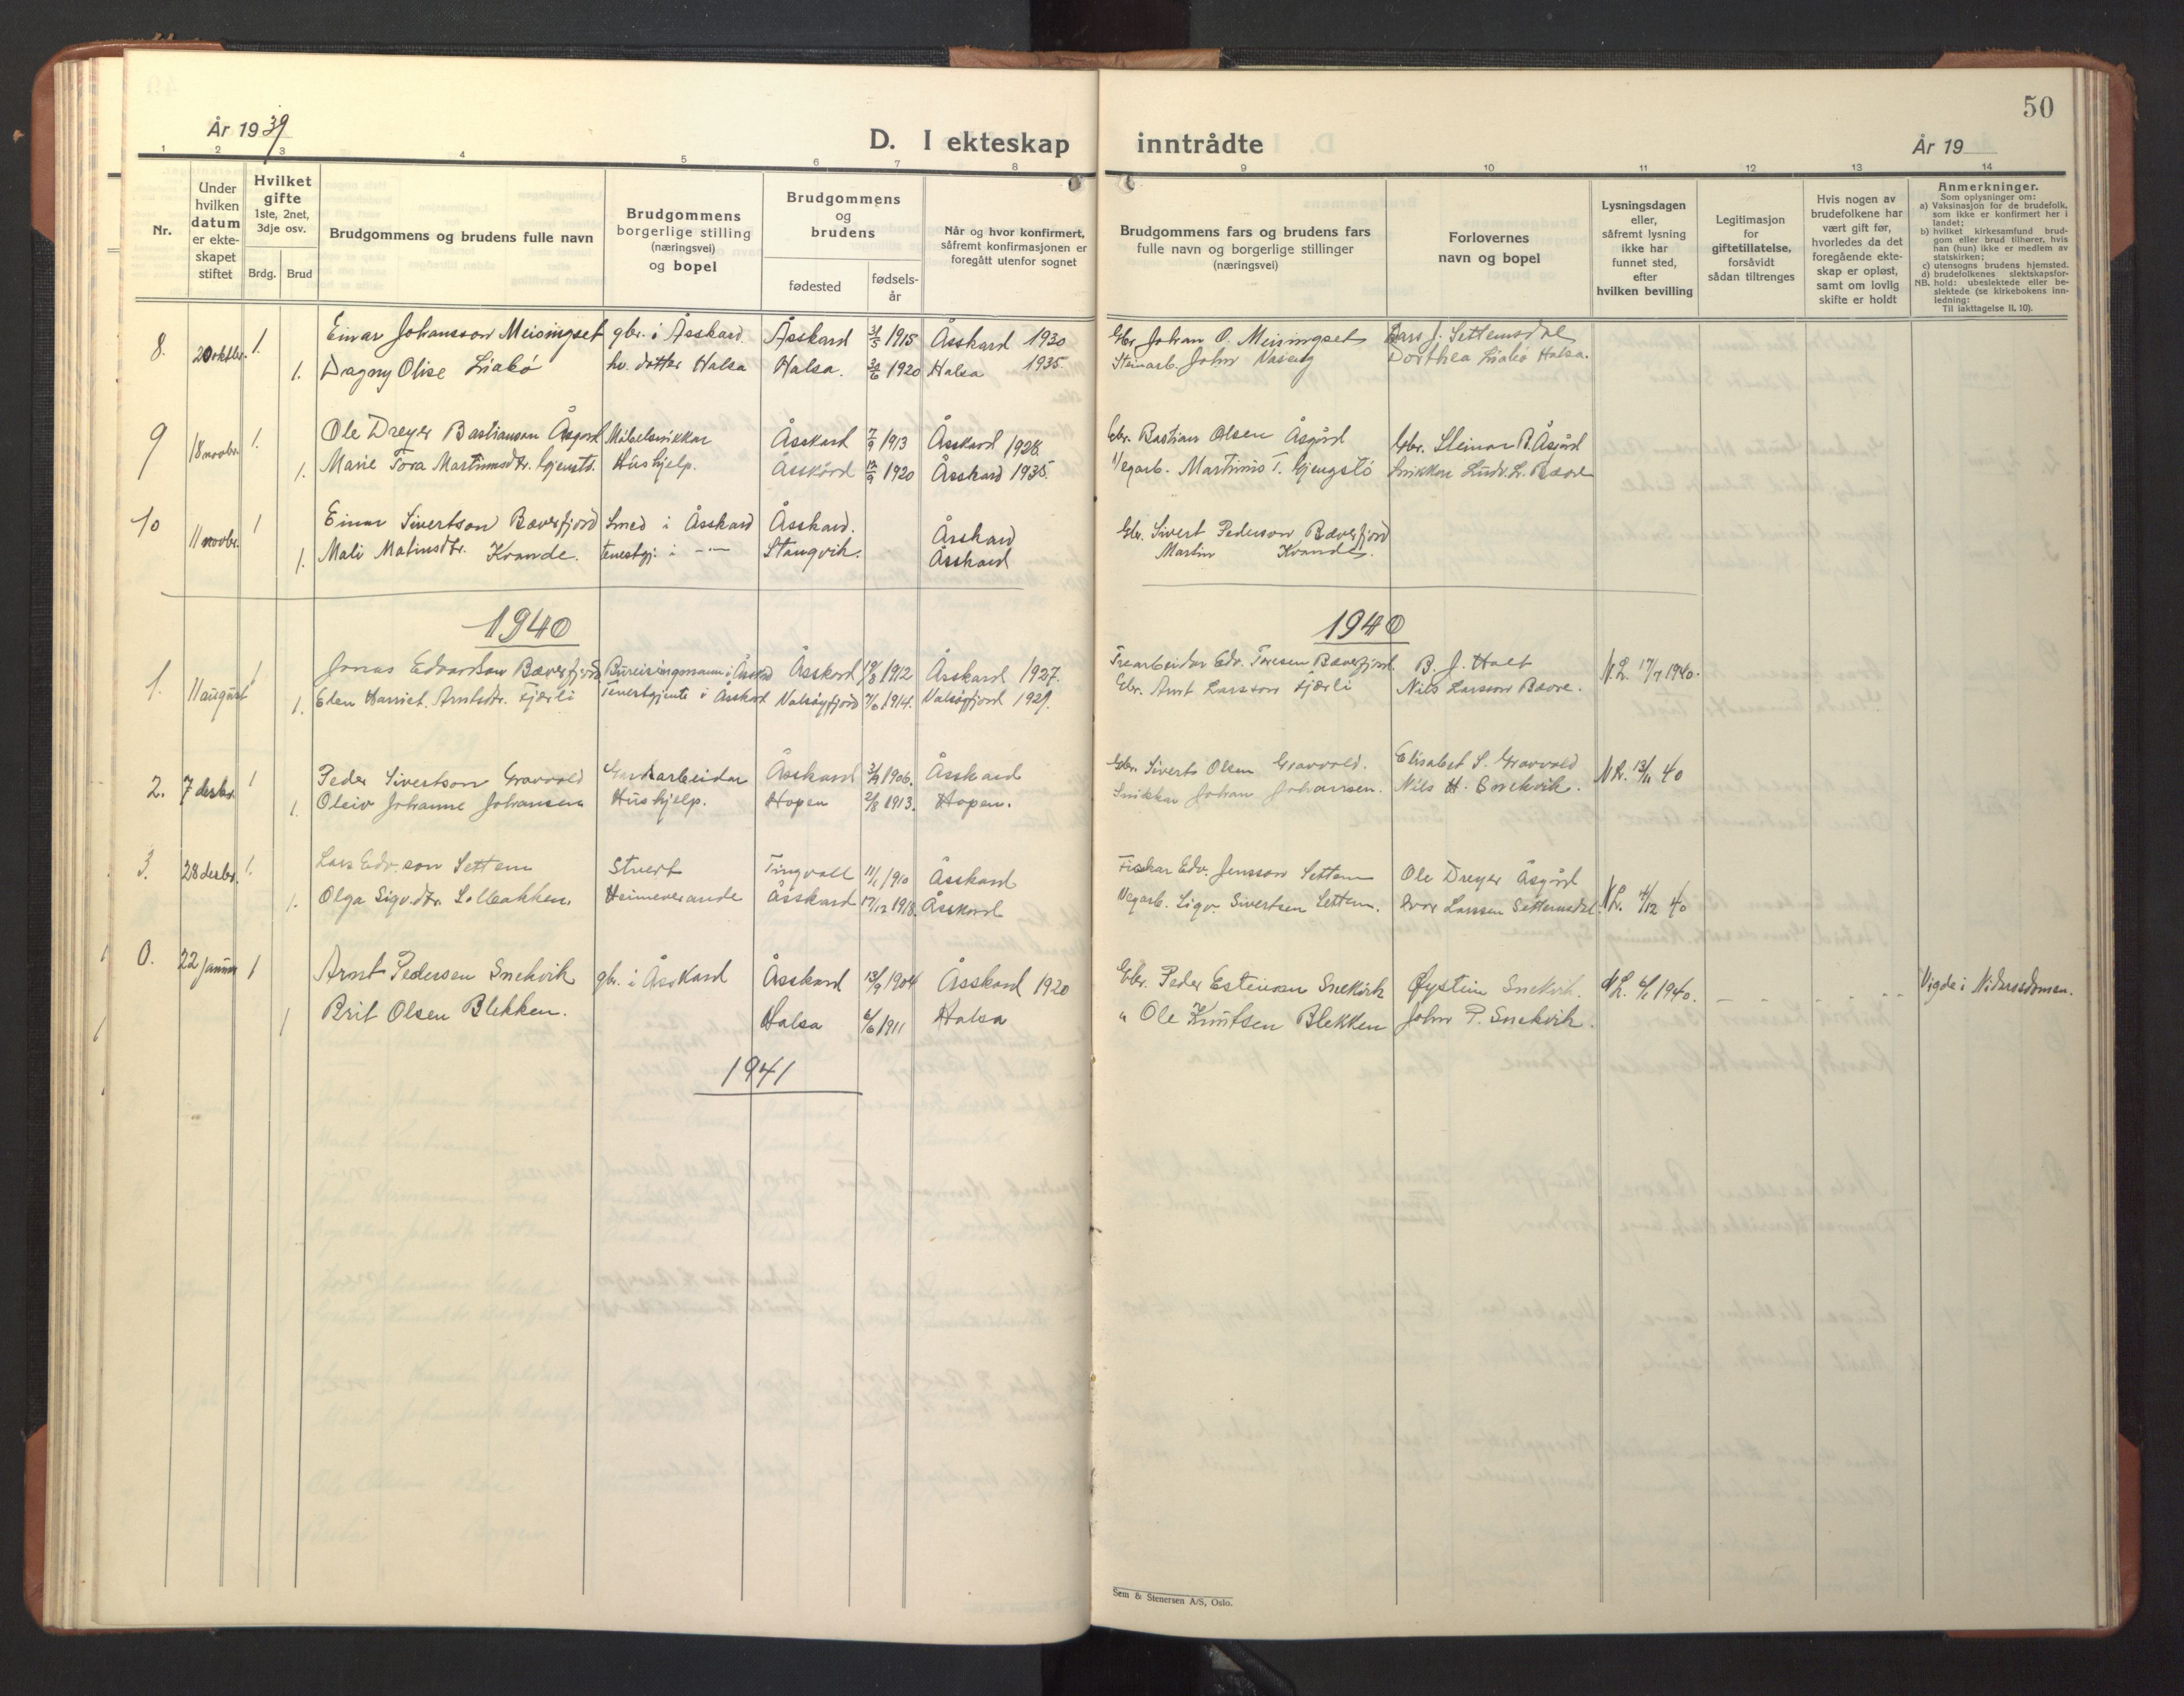 50
År 1939
D. I ekteskap inntrådte
År 19
1 2 3 4 5 6 7 8 9 10 11 12 13 14
Nr.
Under hvilken datum er ekteskapet stiftet
Hvilket gifte 1ste, 2net, 3dje osv.
Brdg. Brud
Brudgommens og brudens fulle navn
Brudgommens borgerlige stilling (næringsvei) og bopel
Brudgommens og brudens
fødested
fødsels-år
Når og hvor konfirmert, såfremt konfirmasjonen er foregått utenfor sognet
Brudgommens fars og brudens fars fulle navn og borgerlige stillinger (næringsvei)
Forlovernes navn og bopel
Lysningsdagen eller, såfremt lysning ikke har funnet sted, efter hvilken bevilling
Legitimasjon for giftetillatelse, forsåvidt sådan tiltrenges
Hvis nogen av brudefolkene har vært gift før, hvorledes da det foregående ekteskap er opløst, samt om lovlig skifte er holdt
Anmerkninger.
Som oplysninger om:
a) Vaksinasjon for de brudefolk, som ikke er konfirmert her i landet;
b) hvilket kirkesamfund brudgom eller brud tilhører, hvis han (hun) ikke er medlem av statskirken;
c) utensogns brudens hjemsted.
d) brudefolkenes slektskapsforhold: ubeslektede eller beslektede (se kirkebokens innledning:
NB.
Til iakttagelse II. 10).
8. 20 oktbr. 1. Einar Johansson Meisingset gbr. i Åsskard. Åsskard 31/5 1915 Åsskard 1930 Gbr. Johan O. Meisingset Lars J. Settemsdal
1. Dagny Olise Liabø hv. datter Halsa Halsa. 1920 Halsa 1935. Steinarb. John Dorthea Liabø Halsa.
9 18 novbr. 1. Ole Dreyer Bastiansen Åsgård Møbelsnikkar Åsskard 7/9 1913 Åsskard 1928. Gbr. Bastian Olsen Åsgård Gbr. Steinar B. Åsgård
1. Marie Tora Martinusdtr. Hushjelp. Åsskard 1920 Åsskard 1935. Vegarb. Martinus T. Gjengstø Snikkar Ludv. L. Bævre
10 11 novbr. 1 Einar Sivertson Bæverfjord Smed i Åsskard Åsskard. Åsskard Gbr. Sivert Pederson Bæverfjord
1. Mali Matinsdtr. Kvande. tenestgj. i -"- Stangvik. Åsskard Martin Kvande.
1940 1940
1. 11 august 1 Jonas Edvardson Bæverfjord Bureisingsmann i Åsskard Åsskard 1912 Åsskard 1927. Trearbeidar Edv. Toresen Bæverfjord B. J. Holt N.L. 17/7 1940.
1. Elen Harriet. Arntsdtr. Fjærli Tenestgjente i Åsskard Valsøyfjord 1914. Valsøyfjord 1929. Gbr. Arnt Larsson Fjærli Nils Larsson Bævre.
2. 7 desbr. 1 Peder Sivertson Gravvold Gardsarbeidar Åsskard 1906. Åsskard Gbr. Siverts Olsen Gravvold. Elisabet S. Gravvold N.L. 13/11 40
1. Oleiv Johanne Johansen Hushjelp. Hopen 2/8 1913. Hopen. Snikkar Johan Johansen. Nils H. Snekvik.
3. 28 desbr. 1. Lars Edv.son Settem Stuert Tingvoll 11/1 1910 Åsskard Fiskar Edv. Jensson Settem Ole Dreyer Åsgård N.L. 4/12 40
1. Olga Sigv.dtr. Heimeverande Åsskard 17/12 1918. Åsskard Vegarb. Sigv. Sivertsen Settem. Larssen Settemsdal.
0. 22 januar 1 Arnt Pedersen Snekvik gbr. i Åsskard Åsskard 13/9 1904 Åsskard 1920 Gbr. Peder Estensen Snekvik Øystein Snekvik. N.L. 6/1 1940. Vigde i Nidarosdomen.
1 Brit Olsen Blekken. Halsa 6/6 1911 Halsa " Ole Knutsen Blekken John P. Snekvik.
1941
Sem & Stenersen A/S, Oslo.